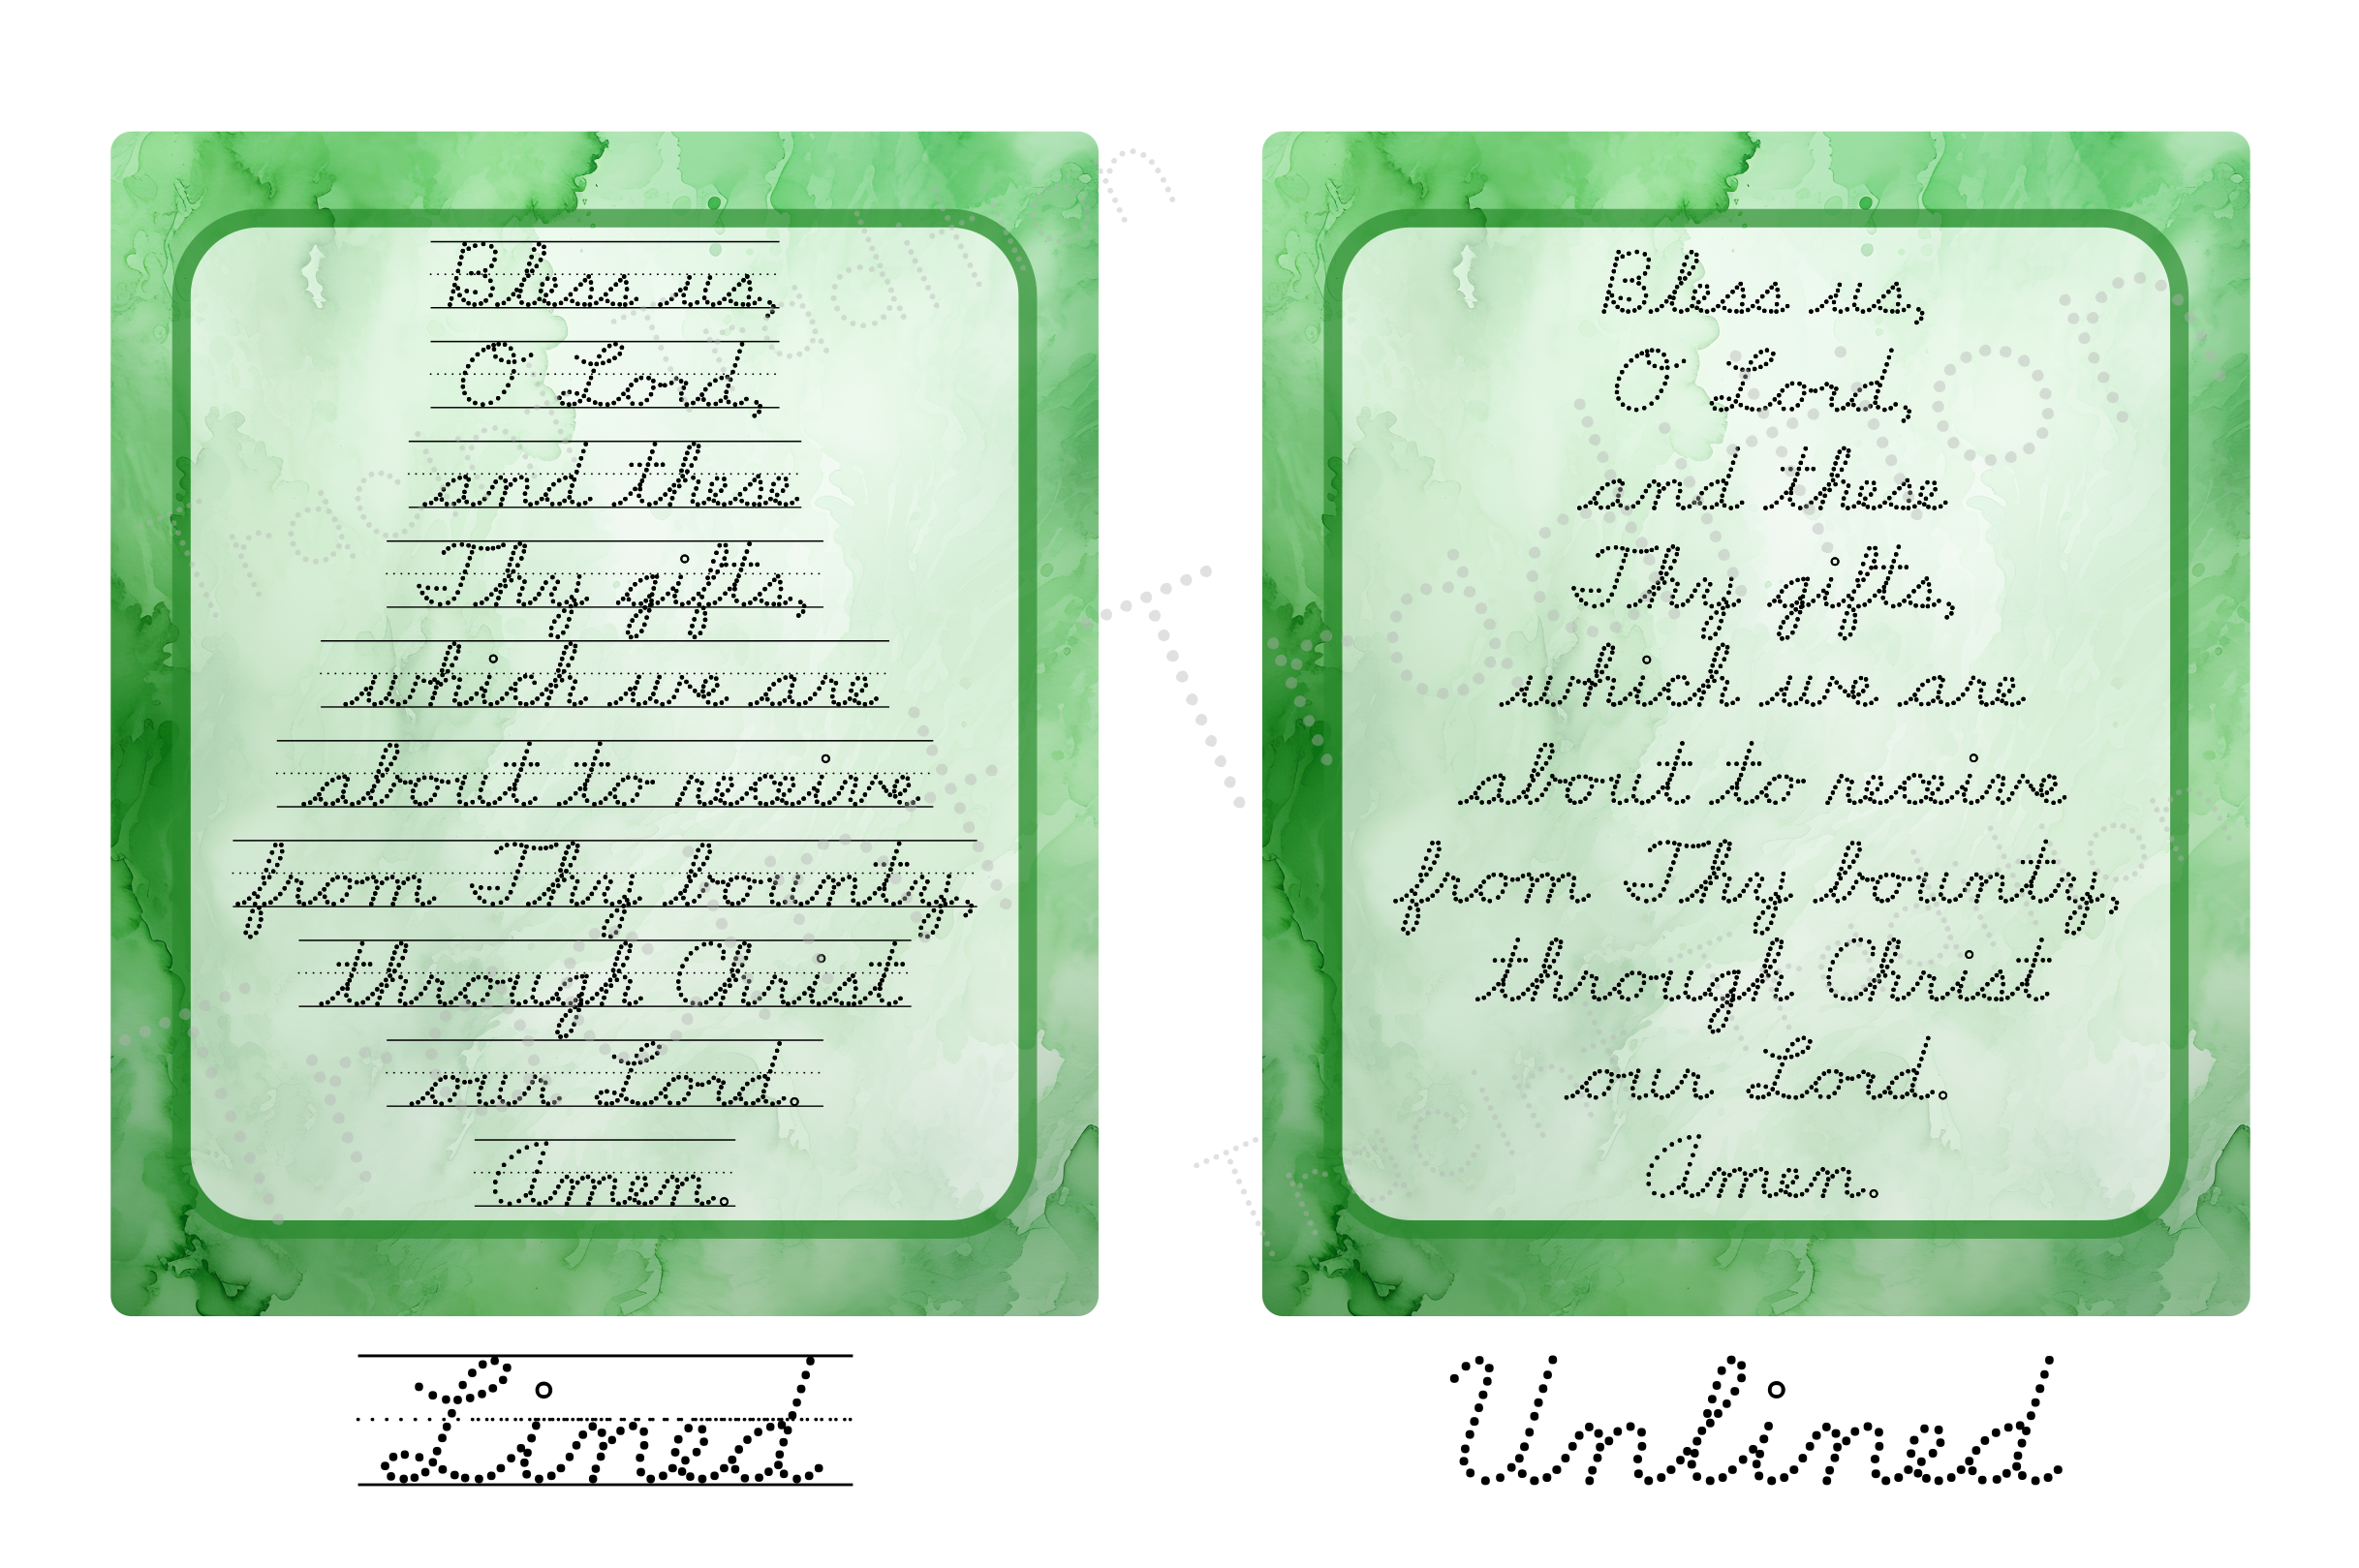 Bless us,
O Lord,
and these
Thy gifts,
which we are
about to receive
from Thy bounty,
through Christ
our Lord.
Amen.
Lined
Bless us,
O Lord,
and these
Thy gifts,
which we are
about to receive
from Thy bounty,
through Christ
our Lord.
Amen.
Unlined